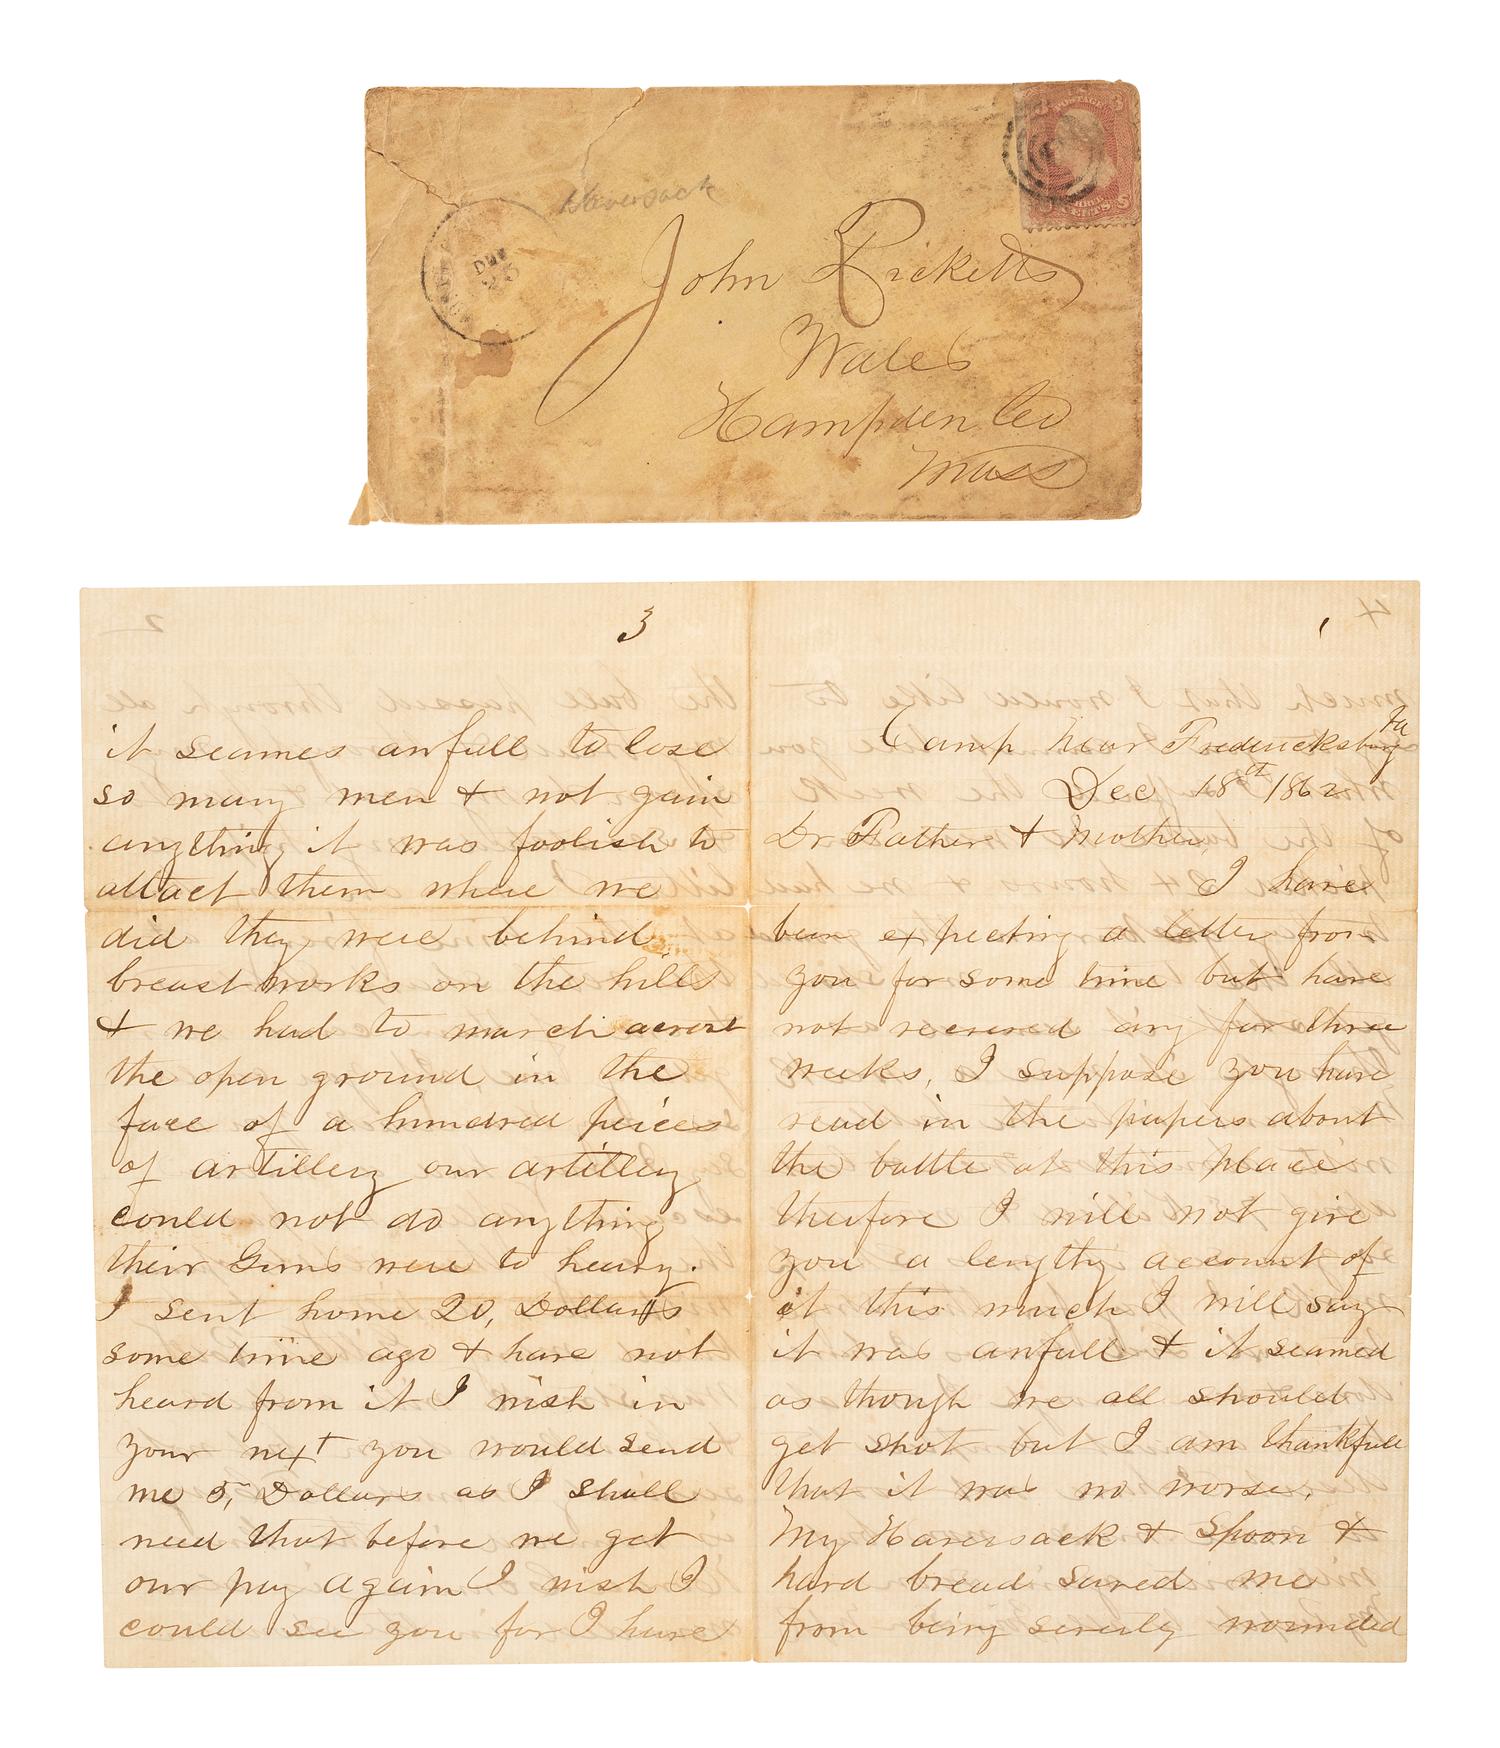 Haversack
DEC
25
POSTAGE
John Ricketts
Wales
Hampden Co
Mass
1
Camp Near Fredericksburg Va
Dec 18th 1862
Dr Father & Mother,
I have
been expecting a letter from
you for some time but have
not recieved any for three
weeks, I suppose you have
read in the papers about
the battle at this place
therfore I will not give
you a lengthy account of
it this much I will say
it was anfull & it seamed
as though we all should
get shot but I am thankfull
that it was no worse.
My Haversack & Spoon &
hard bread saved me
from being severly wounded
3
it seames anfull to lose
so many men & not gain
anything it was foolish to
attact them where we
did they were behind
breast works on the hills
& we had to march acrost
the open ground in the
face of a hundred peices
of artillery our artillery
could not do anything
their Guns were to heavy.
I sent home 20, Dollars
some time ago & have not
heard from it I wish in
your next you would send
me 5, Dollars as I shall
need that before we get
our pay again I wish I
could see you for I have